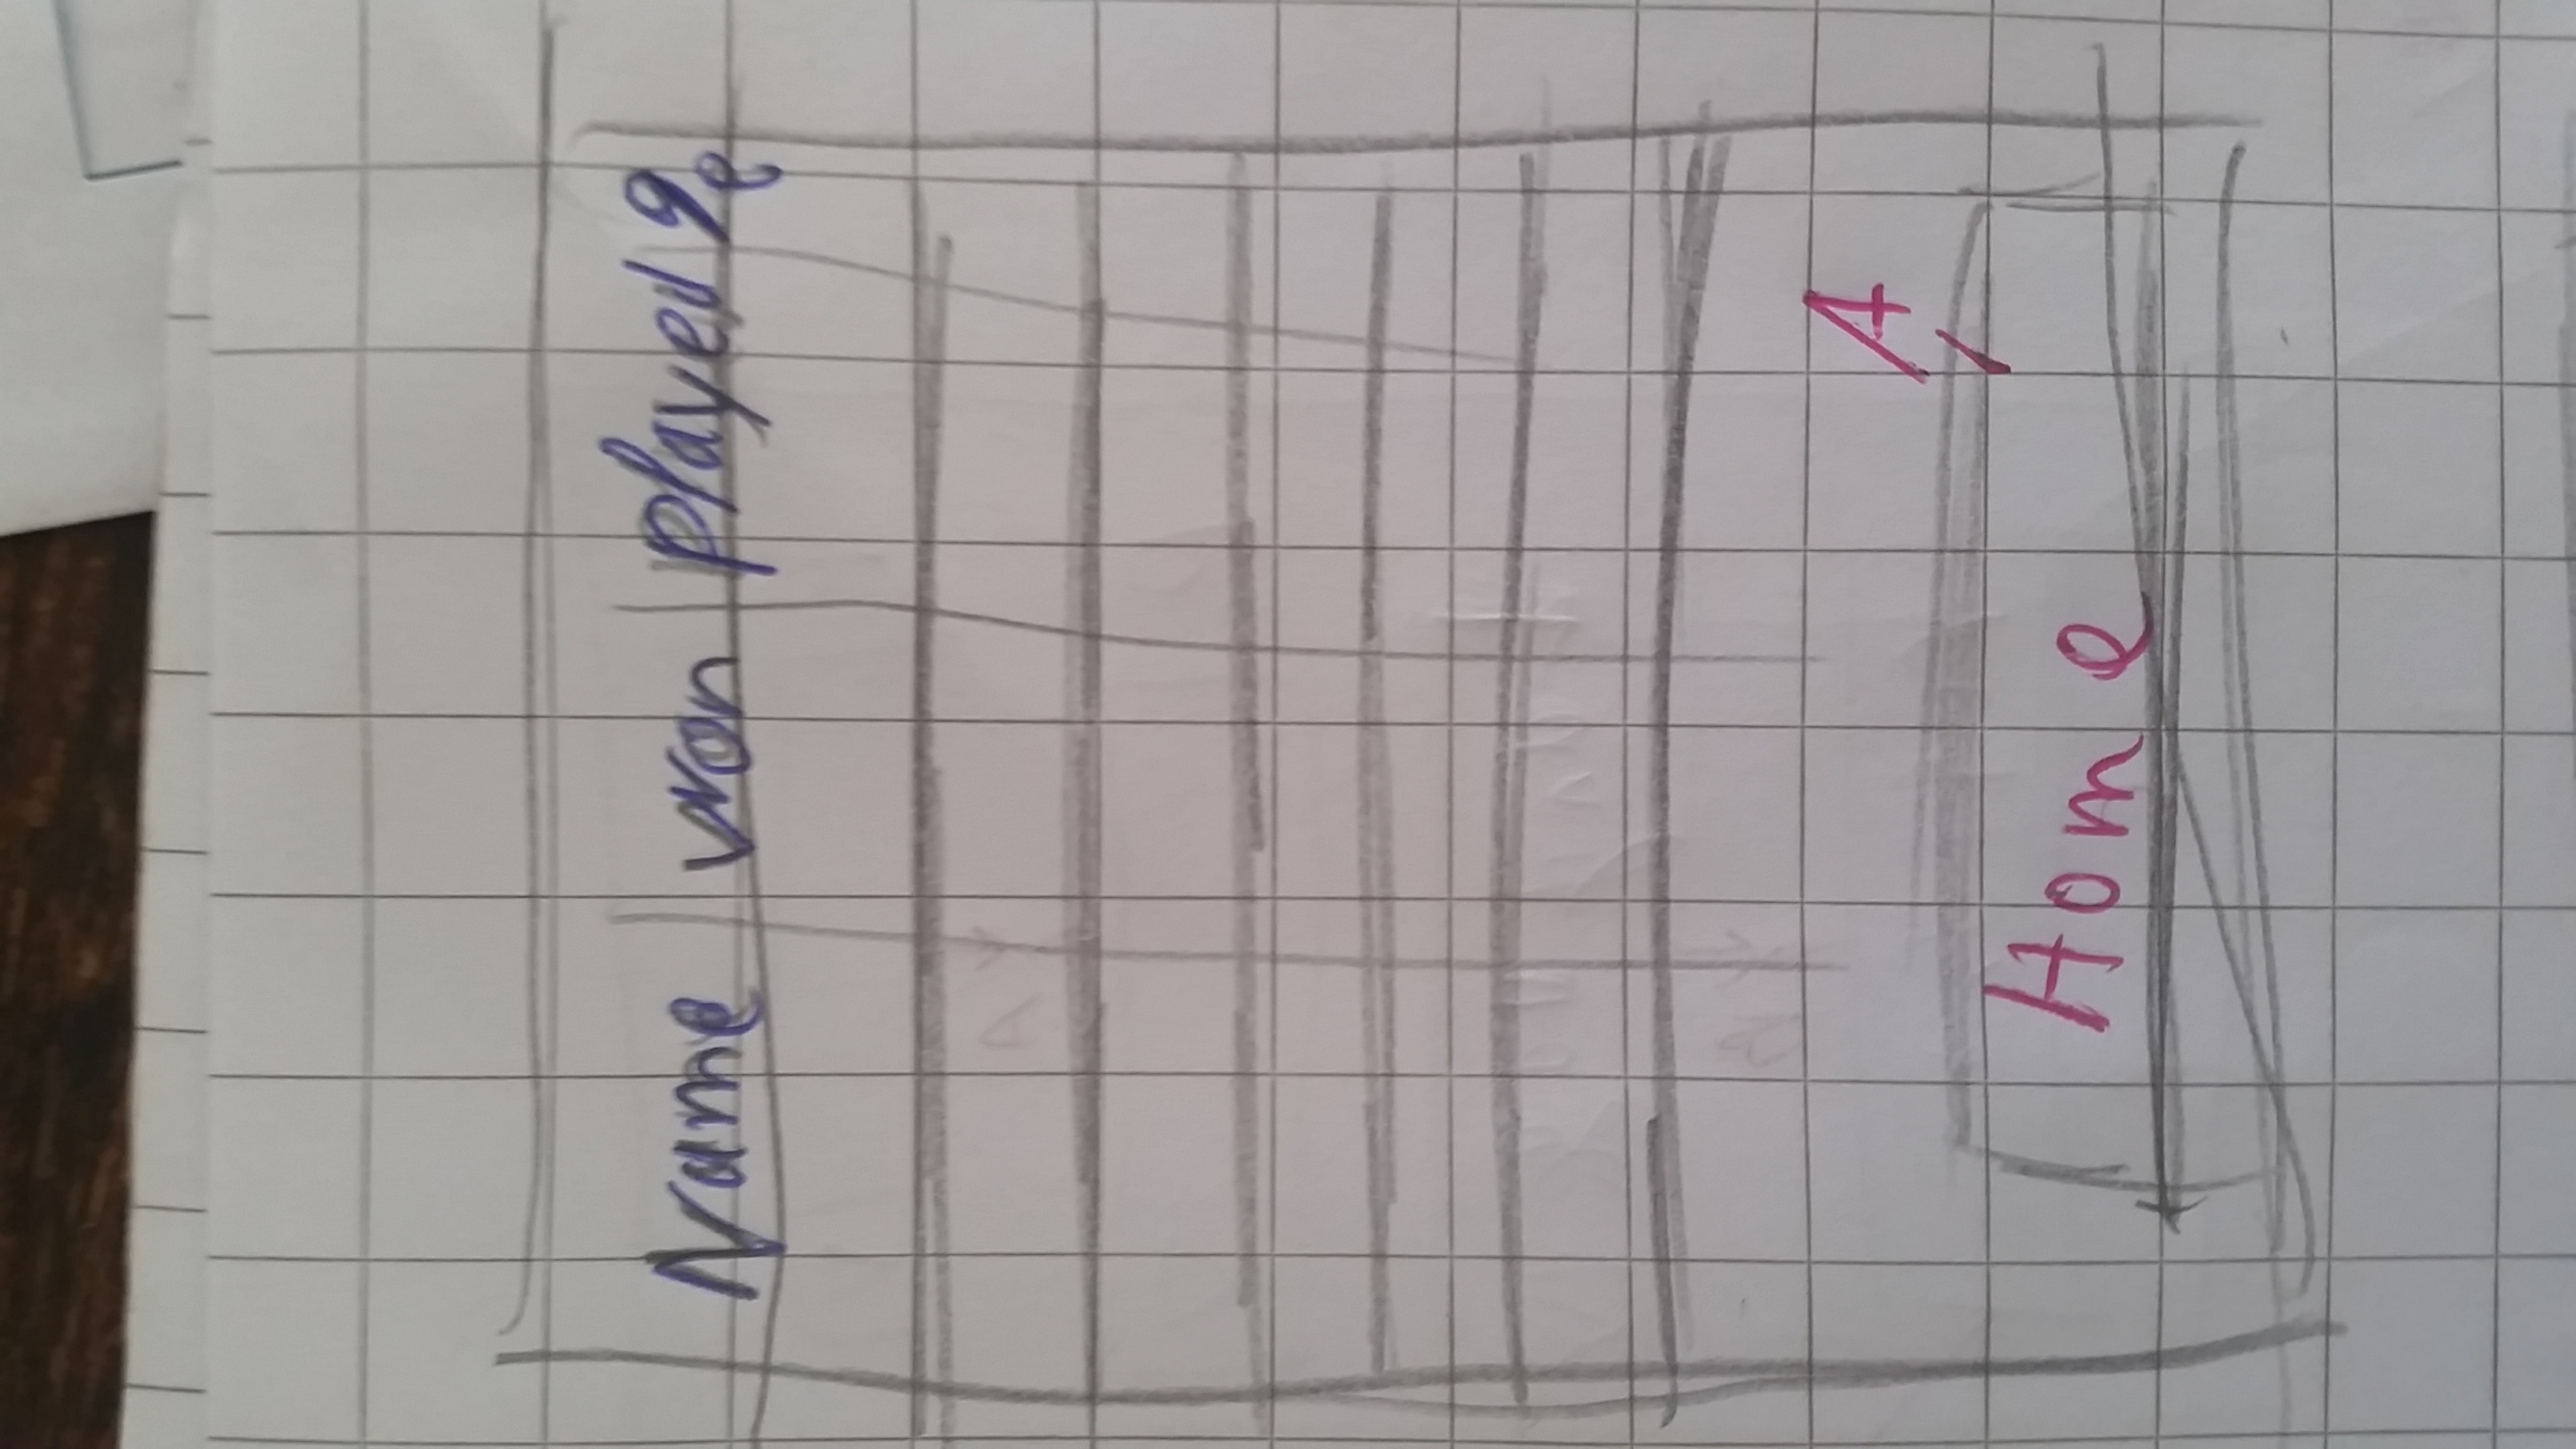 Name won played
A
Home